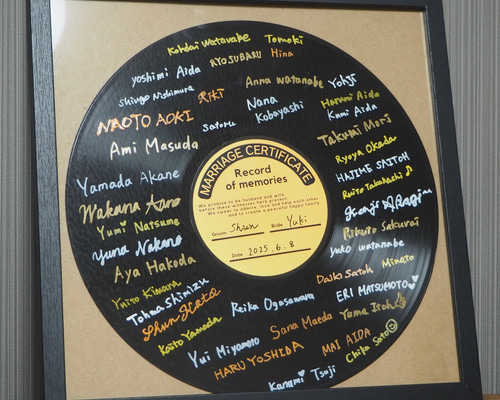 Kohdai Watanabe
Tomoki
RYOSUBARU
Hina
yoshimi Aida
Shingo Nishimura
Riki
Anna watanabe
Yohji
NAOTO AOKI
Satoru
Nana
Kobayashi
Harumi Aida
Kumi Aida
Ami Masuda
Takumi Mori
Yamada Akane
Ryoya Okada
HAJIME SAITOH
Wakana Aono
Ruito Takahashi
Yumi Natsume
Yuna Nakano
Rikuto Sakurai
Aya Hakoda
yuko watanabe
Yuiro Kimura
Tohma Shimizu
Daiki Satoh
Minato
Shun Hata
Reika Ogasawara
ERI MATSUMOTO
Kaito Yamada
Sana Maeda
Yama Itoh
Yui Miyamoto
MAI AIDA
HARU YOSHIDA
Chika Sato
Kanami Tsuji
MARRIAGE CERTIFICATE
Record
of memories
We promise to be husband and wife
before these witnesses here present
We swear to admire, love and help each other
and to create a peaceful happy family
Groom Shun Bride Yuki
Date 2025. 6. 8